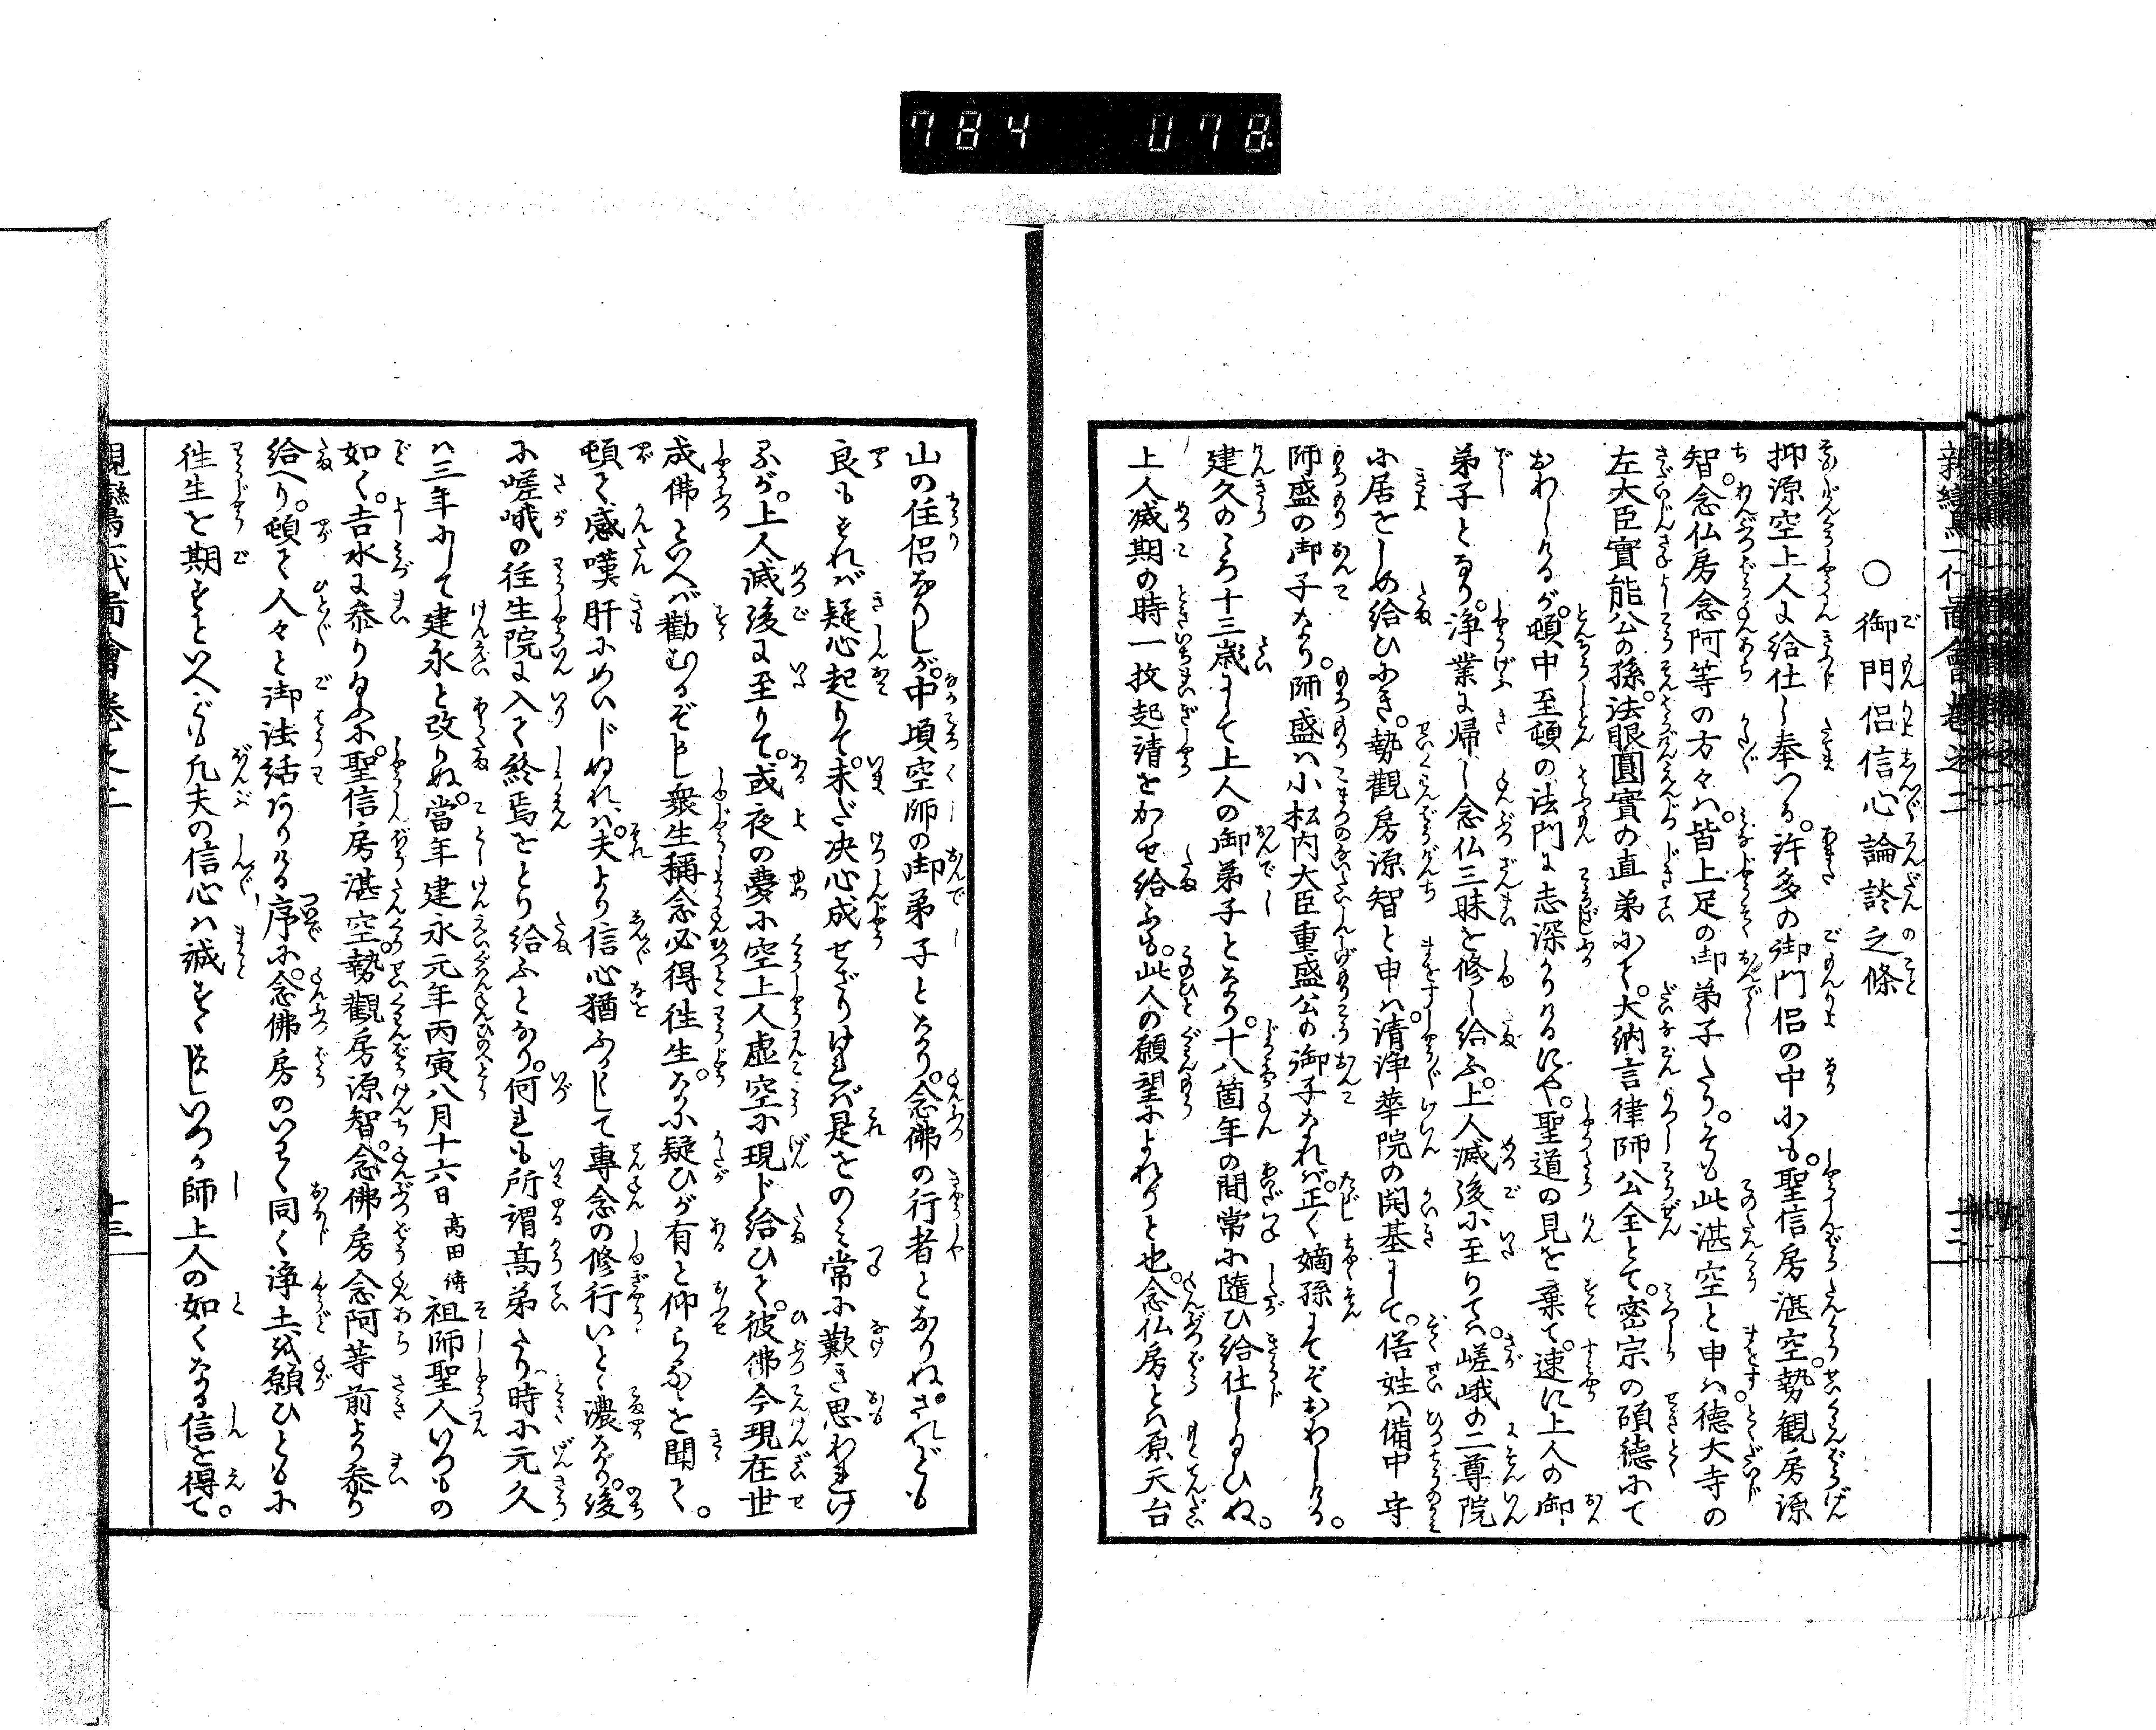 784 078
親鸞一代圖會卷之二 十二
○御門侶信心論談之條
抑源空上人に給仕し奉つる。許多の御門侶の中にも。聖信房湛空。勢観房源
智。念仏房念阿等の方々は。皆上足の御弟子たり。そも此湛空と申は。德大寺の
左大臣實能公の孫。法眼圓實の直弟にて。大納言律師公全とて。密宗の碩德にて
おわしけるが。頓中至頓の法門に志深かりけるにや。聖道の見を棄て。速に上人の御
弟子となり。浄業に帰し念仏三昧を修し給ふ。上人滅後に至りては。嵯峨の二尊院
に居をしめ給ひにき。勢觀房源智と申は。清浄華院の開基にして。俗姓は備中守
師盛の御子なり。師盛は小松内大臣重盛公の御子なれば。正く嫡孫にてぞおわしける。
建久のころ十三歳にして上人の御弟子となり。十八箇年の間常に隨ひ給仕し給ひぬ。
上人滅期の時一枚起請をかゝせ給ふも。此人の願望によれりと也。念仏房とは原天台
山の住侶なりしが。中頃空師の御弟子となり。念佛の行者となりぬ。されども
良もすれば疑心起りて。未だ决心成せざりければ是をのミ常に歎き思われけ
るが。上人滅後に至りて。或夜の夢に空上人虚空に現じ給ひて。彼佛今現在世
成佛といへば勸むるぞよし衆生稱念必得徃生。なに疑ひが有と仰らるゝを聞て。
頓て感嘆肝にめいじぬれは。夫より信心猶ふかくして專念の修行いとゞ濃なり。後
に嵯峨の往生院に入て終焉をとり給ふとなり。何れも所謂高弟たり。時に元久
は三年にして建永と改りぬ。當年建永元年丙寅八月十六日 高田傳 祖師聖人いつもの
如く。吉水に参り給ふに。聖信房湛空。勢觀房源智。念佛房念阿等前より参り
給へり。頓て人々と御法話ありける序に。念佛房のいわく同く浄土を願ひともに
徃生を期すといへども凡夫の信心は誠すくなしいつか師上人の如くなる信を得て。
親鸞一代圖會卷之二 十三